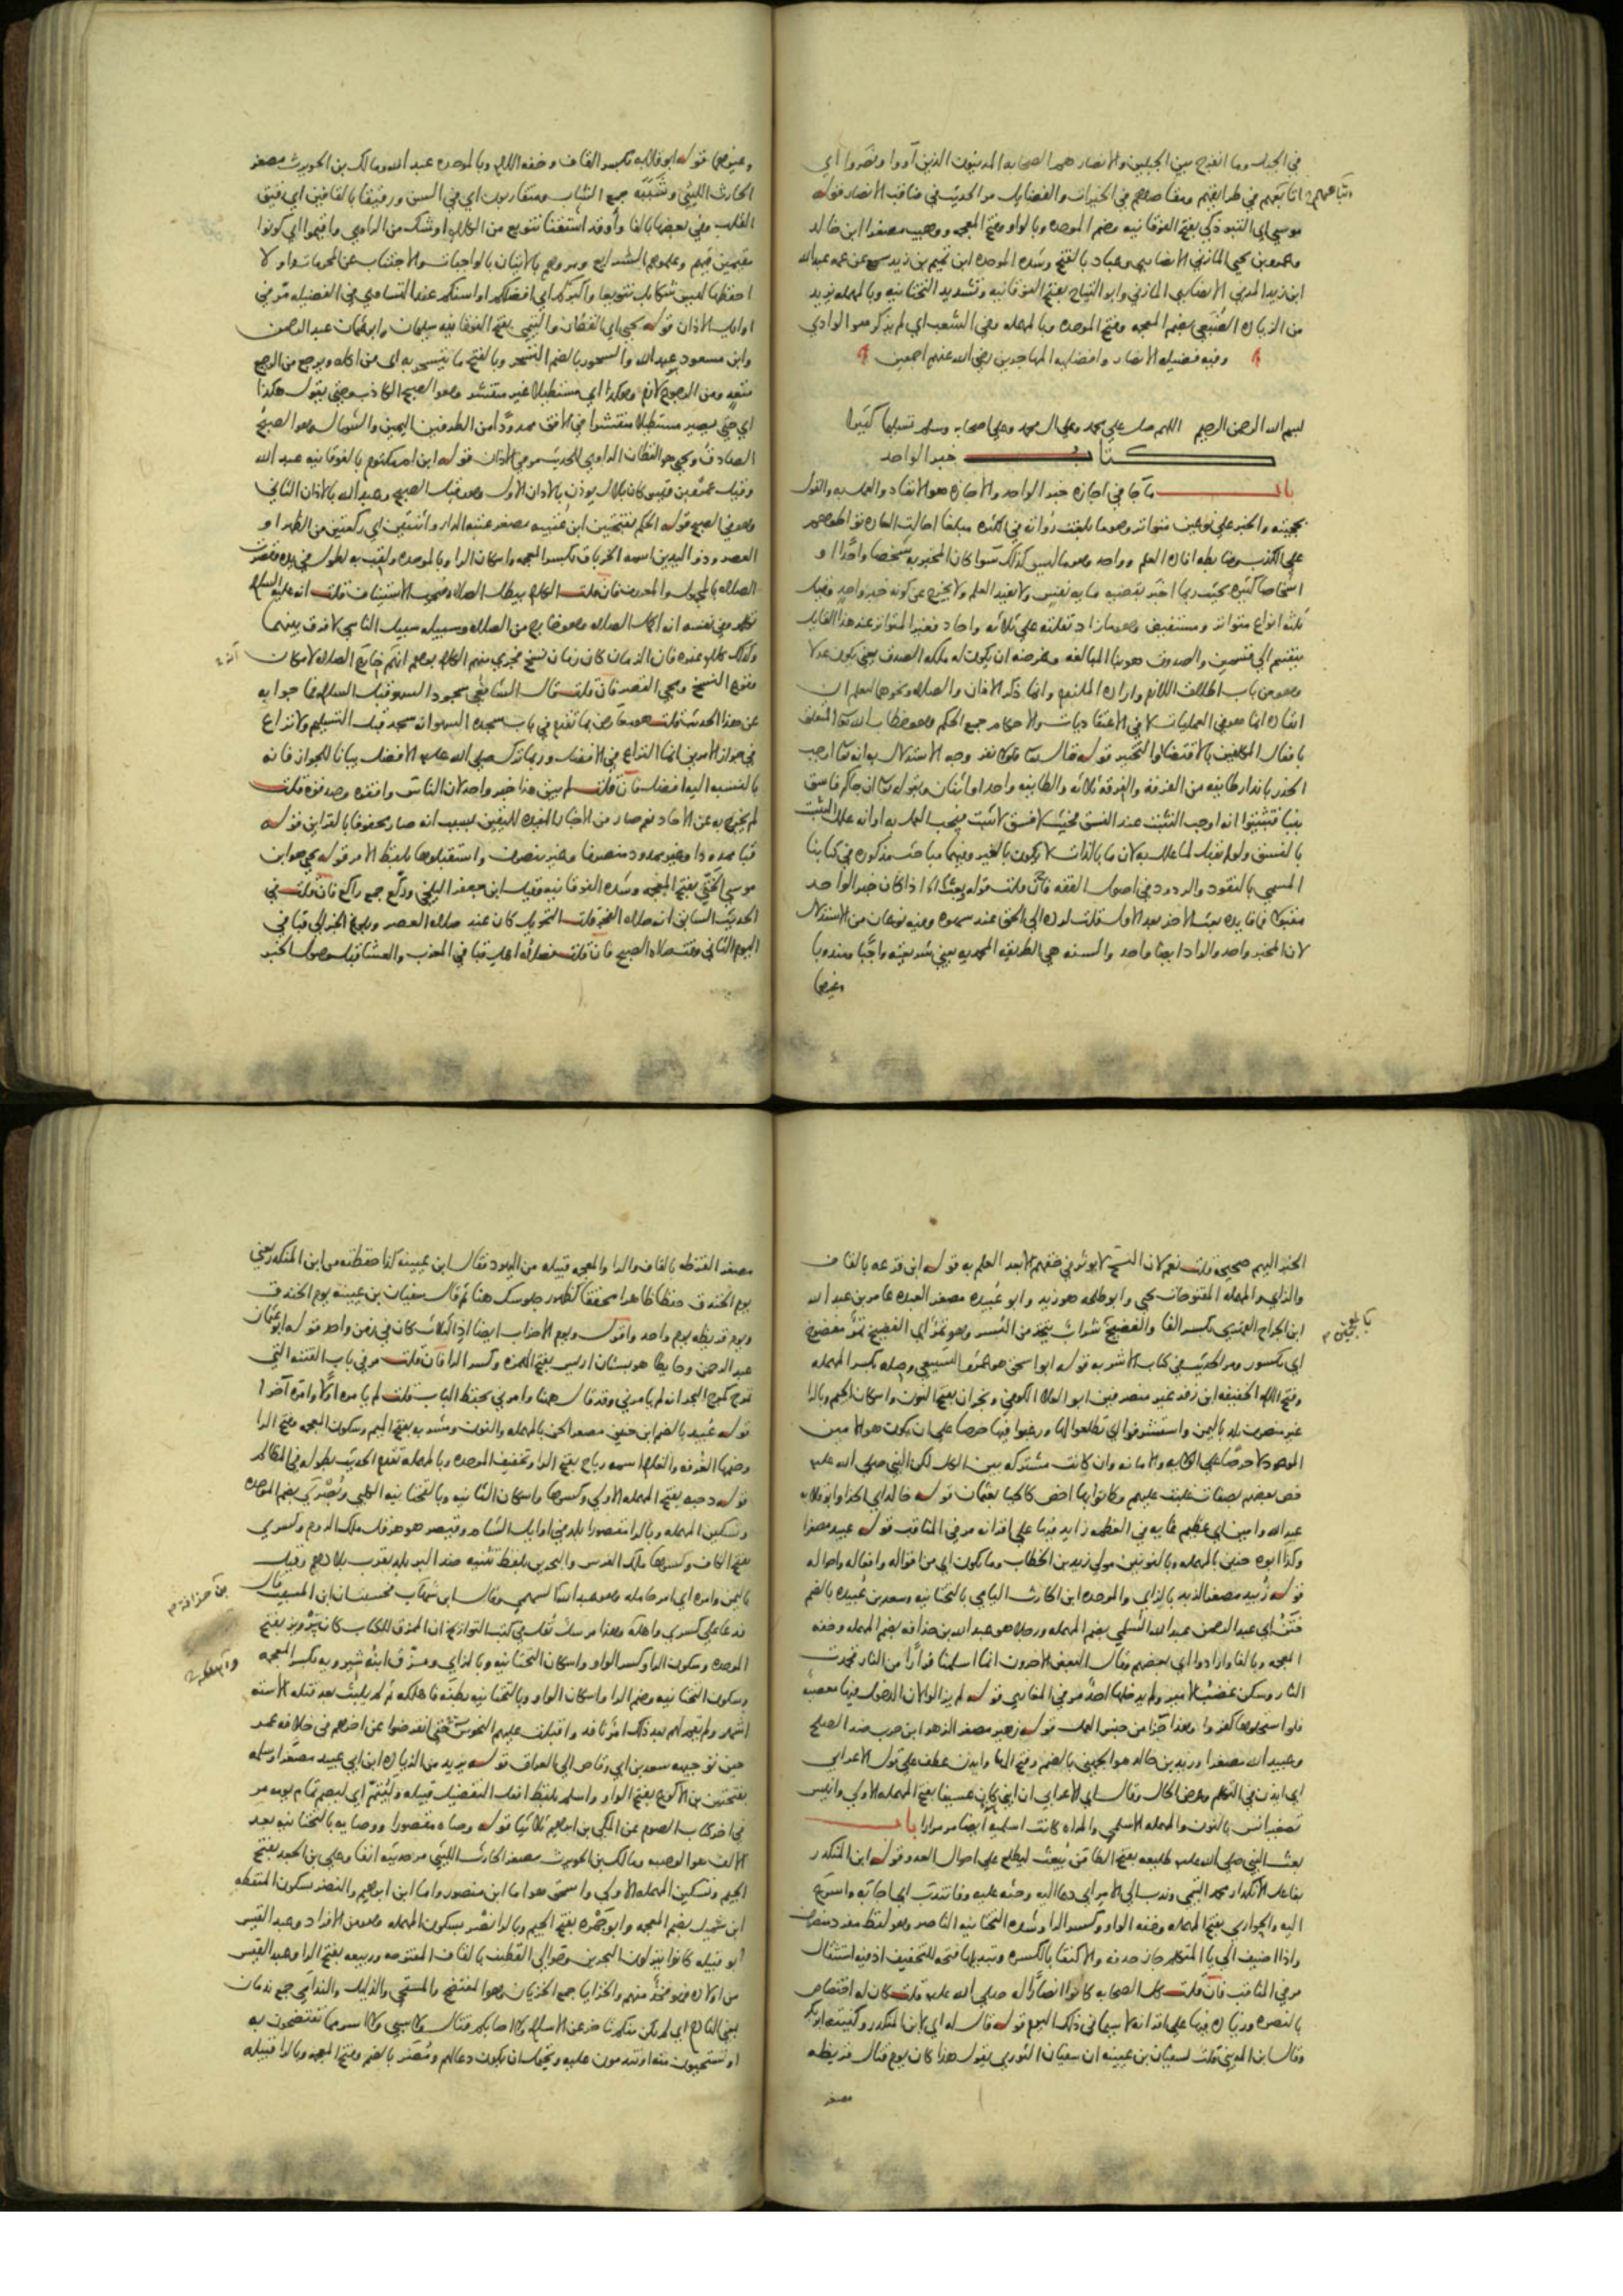 في الجبل وما انفرج بين الجبلين والانصار هم الصحابه المدنيون الذين آووا ونصروا اي
اتابعهم في طرايقهم ومقاصدهم في الخيرات والفضايل مر الحديث في مناقب الانصار قوله
موسي اي التبوذكي بفتح الفوقانيه وضم الموحده وبالواو وفتح المعجمه ووهيب مصغرا ابن خالد
وعمرو بن يحيي المازني الانصاري وعباد بالفتح وشده الموحده ابن تميم بن زيد سمع عن عمه عبدالله
ابن زيد المدني الانصاري المازني وابو التياح بفتح الفوقانيه وتشديد التحتانيه وبالمهمله يزيد
من الزياده الضبعي بضم المعجمه وفتح الموحده وبالمهمله وفي الشعب اي لم يذكر هو الوادي
وفيه فضيله الانصار وافضليه المهاجرين رضي الله عنهم اجمعين
بسم الله الرحمن الرحيم اللهم صل علي محمد وعلي ال محمد وعلي اصحابه وسلم تسليما كثيرا
كتاب خبر الواحد
باب ما جا في اجازه خبر الواحد والاجازه هو الانفاد والعمل به والقول
بحجيته والخبر علي نوعين متواتر وهو ما بلغت رواته في الكثره مبلغا احالت العاده تواطوهم
علي الكذب وضابطه افاده العلم وواحد وهو ما ليس كذلك سوا كان المخبر به شخصا واحدا او
اشخاصا كثيره بحيث ربما اخبر بقضيه مايه نفس ولا يفيد العلم ولا يخرج عن كونه خبر واحد وقيل
ثلثه انواع متواتر ومستفيض وهو ما زاد نقلته علي ثلاثه واحاد فغير المتواتر عند هذا القايل
ينقسم الي قسمين والصدوق هو بنا المبالغه وغرضه ان يكون له ملكه الصدق يعني يكون عدلا
وهو من باب اطلاق اللازم واراده الملزوم وانما ذكر الاذان والصلاه ونحوها ليعلم ان
انفاده انما هو في العمليات لا في الاعتقاديات والاحكام جمع الحكم وهو خطاب الله تعالي المتعلق
بافعال المكلفين بالاقتضا والتخيير قوله قال تعالي فلولا نفر وجه الاستدلال به انه تعالي اوجب
الحذر بانذار طايفه من الفرقه والفرقه ثلاثه والطايفه واحد او اثنان وبقوله تعالي ان جاكم فاسق
بنبا فتبينوا انه اوجب التثبت عند الفسق فحيث لا فسق لا تثبت فيجب العمل به او انه علل التثبت
بالفسق ولو لم يقبل لما علل به لان ما بالذات لا يكون بالغير وفيهما مباحث مذكوره في كتابنا
المسمي بالنقود والردود في اصول الفقه فان قلت قوله بعث امراءه اذا كان خبر الواحد
مقبولا فما فايده بعث الاخر بعد الاول قلت لرده الي الحق عند سهوه وفيه نوعان من الاستدلال
لان المخبر واحد والراد ايضا واحد والسنه هي الطريقه المحمديه يعني شريعته واجبا ومندوبا
وغيرهما
وغيرهما قوله ابو قلابه بكسر القاف وخفه اللام وبالموحده عبد الله ومالك بن الحويرث مصغر
الحارث الليثي وشببه جمع الشاب ومتقاربون اي في السن ورقيقا بالقافين اي رقيق
القلب وفي بعضها بالفا وأوقد استقنا تنويع من الكلام او شك من الراوي واقيموا اي كونوا
مقيمين فيهم وعلموهم الشرايع ومروهم بالاتيان بالواجبات والاجتناب عن المحرمات واو لا
احفظها ليس شكا بل تنويعا واكبركم اي افضلكم او اسنكم عند التساوي في الفضيله مر في
اوايل الاذان قوله يحيي اي القطان والتيمي بفتح الفوقانيه سليمان وابو عثمان عبد الرحمن
وابن مسعود عبد الله والسحور بالضم التسحر وبالفتح ما يتسحر به اي من اكله ويرجع من الرجع
متعد ومن الرجوع لازم وهكذا اي مستطيلا غير منتشر وهو الصبح الكاذب وحتي يقول هكذا
اي حتي يصير مستطيلا منتشرا في الافق ممدودا من الطرفين اليمين والشمال وهو الصبح
الصادق ويحيي هو القطان الراوي للحديث مر في الاذان قوله ابن ام مكتوم بالفوقانيه عبد الله
وقيل عمرو بن قيس كان بلال يوذن بالاذان الاول وهو قبل الصبح وعبد الله بالاذان الثاني
وهو في الصبح قوله الحكم بفتحتين ابن عتيبه مصغر عتبه الدار واثنتين اي ركعتين من الظهر او
العصر وذو اليدين اسمه الخرباق بكسر المعجمه واسكان الرا وبالموحده ولقب به لطول في يده وقصرت
الصلاه بالمجهول والمعروف فان قلت الكلام يبطل الصلاه فيجب الاستيناف قلت انه عليه السلام
تكلم وفي نفسه انه اكمل الصلاه وهو خارج من الصلاه وسبيله سبيل الناسي لا فرق بينهما
وكذلك كلام غيره فان الزمان كان زمان نسخ فجري منهم الكلام بوهم انهم خارج الصلاه لامكان
وقوع النسخ ومجي القصر فان قلت قال الشافعي سجود السهو قبل السلام فما جوابه
عن هذا الحديث قلت هو معارض بما تقدم في باب سجده السهو انه سجد قبل التسليم ولا نزاع
في جواز الامرين انما النزاع في الافضل وربما ترك صلي الله عليه الافضل بيانا للجواز فانه
بالنسبه اليه افضل فان قلت لم يبق هذا خبر واحد لان الناس وافقوه وصدقوه قلت
لم يخرج به عن الاحاد نعم صار من الاخبار المفيده لليقين بسبب انه صار محفوفا بالقراين قوله
قبا ممدودا وغير ممدود منصرفا وغير منصرف واستقبلوها بلفظ الامر قوله يحيي هو ابن
موسي الختي بفتح المعجمه وشده الفوقانيه وقيل ابن جعفر البلخي وركع جمع راكع فان قلت في
الحديث السابق انه صلاه الفجر قلت التحويل كان عند صلاه العصر وبلوغ الخبر الي قبا في
اليوم الثاني وقت صلاه الصبح فان قلت فصلاه اهل قبا في المغرب والعشا قبل وصول الخبر
الخبر اليهم صحيحه قلت نعم لان النسخ لا يوثر في حقهم الا بعد العلم به قوله ابن قزعه بالقاف
والزاي والمهمله المفتوحات يحيي وابو طلحه هو زيد وابو عبيده مصغر العبده عامر بن عبد الله
ابن الجراح الفهري بكسر الفا والفضيخ شراب يتخذ من البسر وهو تمر اي الفضيخ تمر مفضوخ
اي مكسور ومر الحديث في كتاب الاشربه قوله ابو اسحق هو عمرو السبيعي وصله بكسر المهمله
وفتح اللام الخفيفه ابن زفر غير منصرفين ابو العلا الكوفي ونجران بفتح النون واسكان الجيم وبالرا
غير منصرف بلد باليمن واستشرفوا اي تطلعوا لها ورغبوا فيها حرصا علي ان يكون هو الامين
الموعود لا حرصا علي الولايه والامانه وان كانت مشتركه بين الكل لكن النبي صلي الله عليه
خص بعضهم بصفات غلبت عليهم وكانوا بها اخص كالحيا بعثمان قوله خالد اي الحذا وابو قلابه
عبد الله وامين اي عظيم غايه في العظمه زايد فيها علي اقرانه مر في المناقب قوله عبيد مصغرا
وكذا ابوه حنين بالمهمله وبالنونين مولي زيد بن الخطاب وما يكون اي من اقواله وافعاله واحواله
قوله زبيد مصغر الزبد بالزاي والموحده ابن الحارث اليامي بالتحتانيه وسعد بن عبيده بالضم
ختن ابي عبد الرحمن عبد الله السلمي بضم المهمله ورجلا هو عبد الله بن حذافه بضم المهمله وخفه
المعجمه وبالفا وارادوا اي بعضهم وقال البعض الاخرون انما اسلمنا فرارا من النار فخمدت
النار وسكن غضب الامير ولم يدخلها احد مر في المغازي قوله لم يزالوا لان الدخول فيها معصيه
فلو استحلوها كفروا وهذا جزا من جنس العمل قوله زهير مصغر الزهر ابن حرب ضد الصلح
وعبيد الله مصغرا وزيد بن خالد هو الجهني بالضم وفتح الها وايذن عطف علي قول الاعرابي
اي ايذن في التكلم وعرض الحال وقال اي الاعرابي ان ابني كان عسيفا بفتح المهمله الاولي وانيس
تصغير انس بالنون والمهمله الاسلمي والمراه كانت اسلميه ايضا مر مرارا باب
بعث النبي صلي الله عليه طليعه بفتح الطا من يبعث ليطلع علي احوال العدو قوله ابن المنكدر
بفاعل الانكدار محمد التيمي وندب الي الامر اي دعا اليه وحثه عليه وفانتدب اي اجابه واسرع
اليه والحواري بفتح المهمله وخفه الواو وكسر الرا وشده التحتانيه الناصر وهو لفظ مفرد منصرف
واذا اضيف الي يا المتكلم جاز حذفه والاكتفا بالكسره وتبديلها فتحه للتخفيف اذ فيه استثقال
مر في المناقب فان قلت كل الصحابه كانوا انصارا له صلي الله عليه قلت كان له اختصاص
بالنصره وزياده فيها علي اقرانه لا سيما في ذلك اليوم قوله قال له اي لابن المنكدر وكنيته ابو بكر
وقال ابن المديني قلت لسفيان بن عيينه ان سفيان الثوري يقول هذا كان يوم قتال قريظه
مصغر
مصغر القرظه بالقاف والرا والمعجمه قبيله من اليهود فقال ابن عيينه كذا حفظته من ابن المنكدر يعني
يوم الخندق حفظا ظاهرا محققا كظهور جلوسك هنا ثم قال سفيان بن عيينه يوم الخندق
ويوم قريظه يوم واحد واقول ويوم الاحزاب ايضا اذ الثلاث كان في زمن واحد قوله ابو عثمان
عبد الرحمن وحايطا هو بستان اريس بفتح الهمزه وكسر الرا فان قلت مر في باب الفتنه التي
تموج كموج البحر انه لم يامرني وقد قال هنا وامرني بحفظ الباب قلت لم يامره اولا وامره آخرا
قوله عبيد بالضم ابن حنين مصغر الحن بالمهمله والنون ومشربه بفتح الميم وسكون المعجمه وفتح الرا
وضمها الغرفه والغلام اسمه رباح بفتح الرا وتخفيف الموحده وبالمهمله تقدم الحديث بطوله في المظالم
قوله دحيه بفتح المهمله الاولي وكسرها واسكان الثانيه وبالتحتانيه الكلبي وبصري بضم الموحده
وتسكين المهمله وبالرا مقصورا بلد في اوايل الشام وقيصر هو هرقل ملك الروم وكسري
بفتح الكاف وكسرها ملك الفرس والبحرين بلفظ تثنيه ضد البر بلد بقرب بلادهم وقيل
باليمن وامره اي امر حامله وهو عبد الله السهمي وقال ابن شهاب فحسبت ان ابن المسيب قال
فدعا علي كسري واهلكه وهذا مرسل نقل في كتب التواريخ ان الممزق للكتاب كان پرويز بفتح
الموحده وسكون الرا وكسر الواو واسكان التحتانيه وبالزاي ومزق ابنه شيرويه بكسر المعجمه
وسكون التحتانيه وضم الرا واسكان الواو وبالتحتانيه بطنه فاهلكه ثم لم يلبث بعد قتله الا سته
اشهر ولم يقم لهم بعد ذلك امر نافد واقبلت عليهم النحوس حتي انقرضوا عن اخرهم في خلافه عمر
حين توجيهه سعد بن ابي وقاص الي العراق قوله يزيد من الزياده ابن ابي عبيد مصغرا وسلمه
بفتحتين بن الاكوع بفتح الواو واسلم بلفظ افعل التفضيل قبيله وليتم اي ليصم تمام يومه مر
في اخر كتاب الصوم عن المكي بن ابراهيم ثلاثيا قوله وصاه مقصورا ووصايه بالتحتانيه بعد
الالف هو الوصيه ومالك بن الحويرث مصغر الحارث الليثي مر حديثه انفا وعلي بن الجعد بفتح
الجيم وتسكين المهمله الاولي واسحق هو اما ابن منصور واما ابن ابراهيم والنضر بسكون المنقطه
ابن شميل بضم المعجمه وابو جمره بفتح الجيم وبالرا نصر بسكون المهمله وهو من الافراد وعبد القيس
ابو قبيله كانوا ينزلون البحرين وحوالي القطيف بالقاف المفتوحه وربيعه بفتح الرا وعبد القيس
من اولاده فهو فخذ منهم والخزايا جمع الخزيان وهو المفتضح والمستحي والذليل والندامي جمع ندمان
بمعني النادم اي لم يكن منكم تاخر عن الاسلام ولا اصابكم قتال ولا سبي ولا اسر مما تفتضحون به
او تستحيون منه او تندمون عليه ويحتمل ان يكون دعا لهم ومضر بالضم وفتح المعجمه وبالرا قبيله